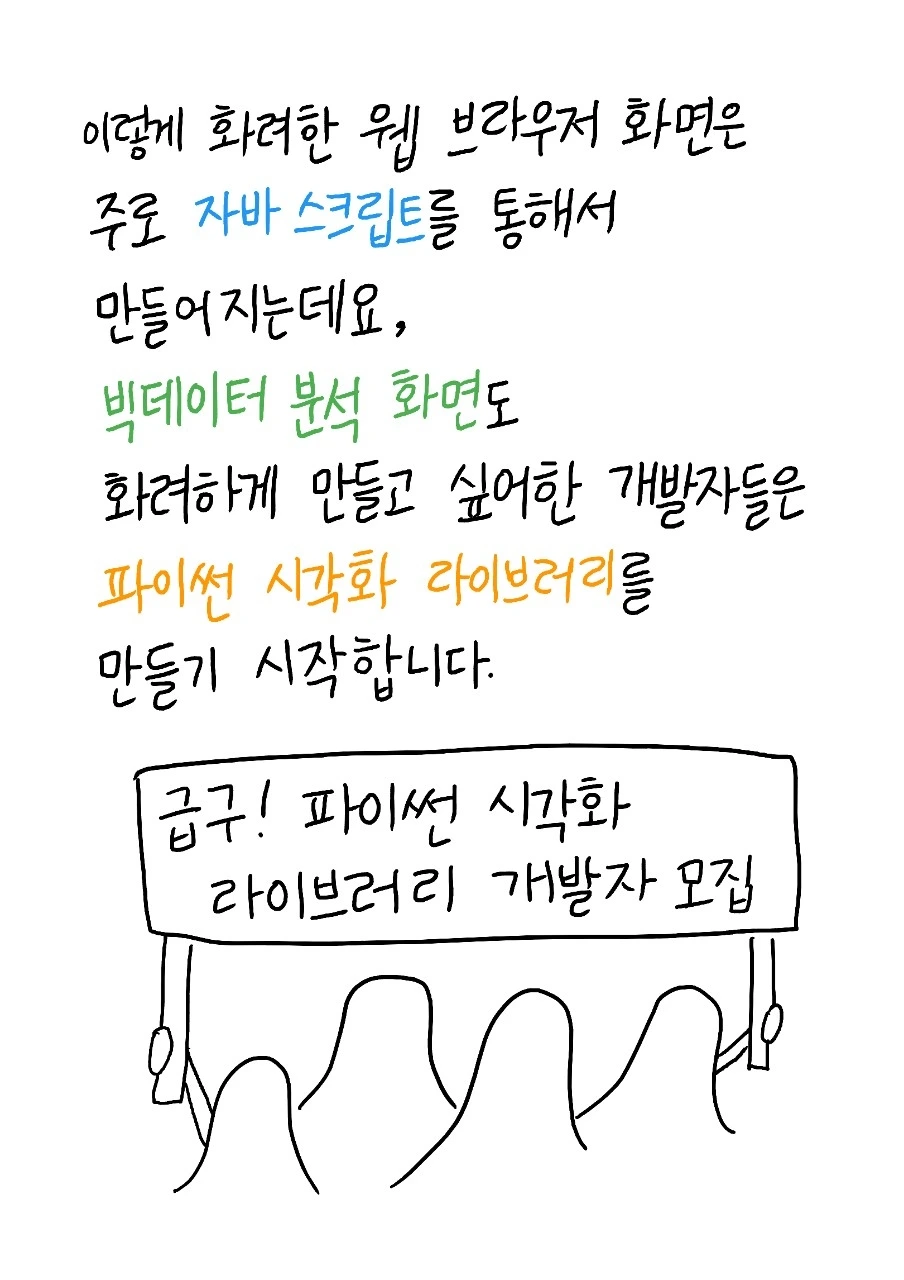 이렇게 화려한 웹 브라우저 화면은
주로 자바 스크립트를 통해서
만들어지는데요,
빅데이터 분석 화면도
화려하게 만들고 싶어한 개발자들은
파이썬 시각화 라이브러리를
만들기 시작합니다.
급구! 파이썬 시각화
라이브러리 개발자 모집